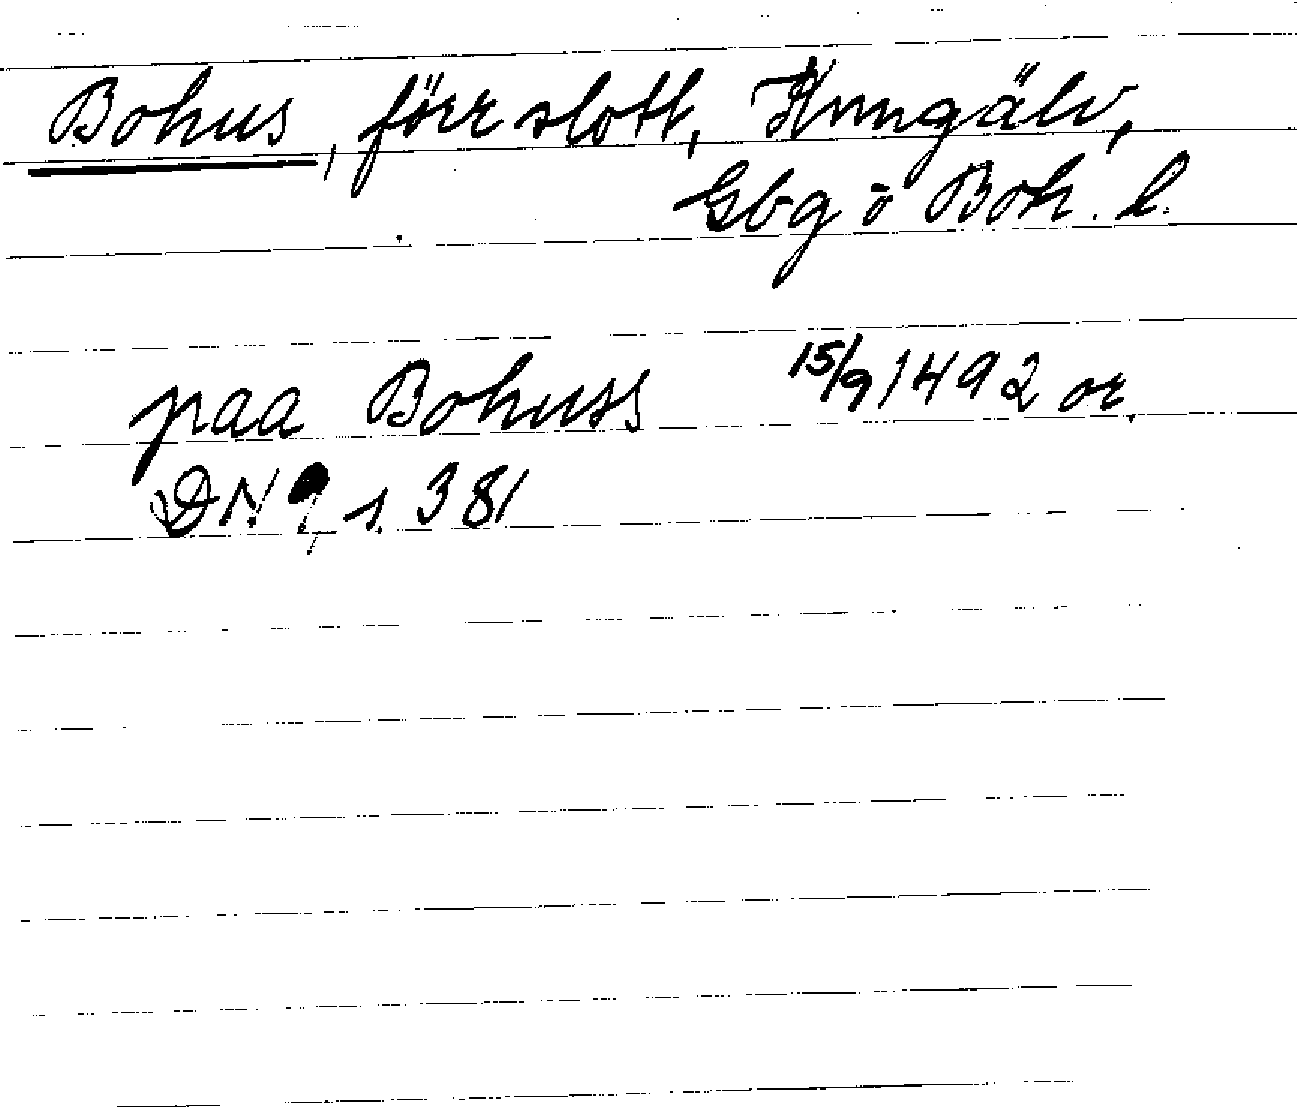 Bohus, förr slott, Kungälv,
Gbg o Boh. l.
paa Bohuss 15/9 1492 or.
DN 9, s. 381